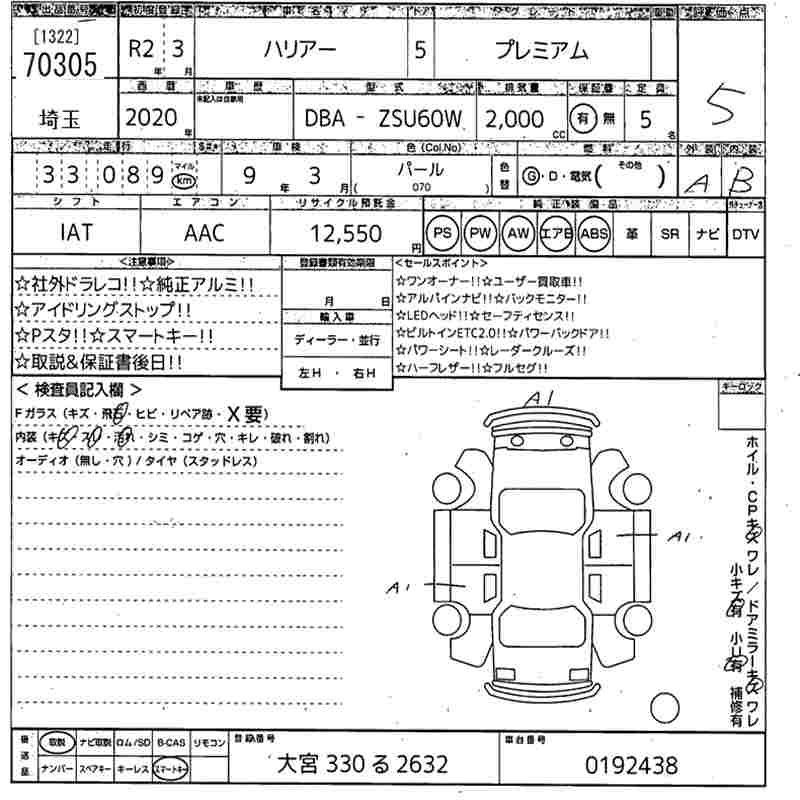 出品番号 初度登録年 車名 ドア グレード 車歴 評価点
[1322]
70305
R2 年 3 月 ハリアー 5 プレミアム
5
埼玉
西暦 車歴 型式 排気量 保証書 定員
未記入は自家用
2020 年 DBA - ZSU60W 2,000 CC 有 無 5 名
走行 車検 色(Col,No) 燃料 外装 内装
33089 マイル km 9 年 3 月 パール ( 070 ) 色替 G・D・電気( その他 ) A B
シフト エアコン リサイクル預託金 純正装備品
IAT AAC 12,550 円 PS PW AW エアB ABS 革 SR ナビ DTV
<注意事項>
☆社外ドラレコ!!☆純正アルミ!!
☆アイドリングストップ!!
☆Pスタ!!☆スマートキー!!
☆取説&保証書後日!!
登録書類有効期限
月 日
輸入車
ディーラー・並行
左H ・ 右H
<セールスポイント>
☆ワンオーナー!!☆ユーザー買取車!!
☆アルパインナビ!!☆バックモニター!!
☆LEDヘッド!!☆セーフティセンス!!
☆ビルトインETC2.0!!☆パワーバックドア!!
☆パワーシート!!☆レーダークルーズ!!
☆ハーフレザー!!☆フルセグ!!
< 検査員記入欄 >
Fガラス(キズ・飛石・ヒビ・リペア跡・X要)
内装(キズ・スレ・汚れ・シミ・コゲ・穴・キレ・破れ・割れ)
オーディオ(無し・穴)/タイヤ(スタッドレス)
キーロック
A1
A1
A1
ホイル・CPキズ ワレ/ドアミラーキズ ワレ
小キズ有 小U有 補修有
後送品
取説 ナビ取説 ロム/SD B-CAS リモコン
ナンバー スペアキー キーレス スマートキー
登録番号
大宮 330 る 2632
車台番号
0192438